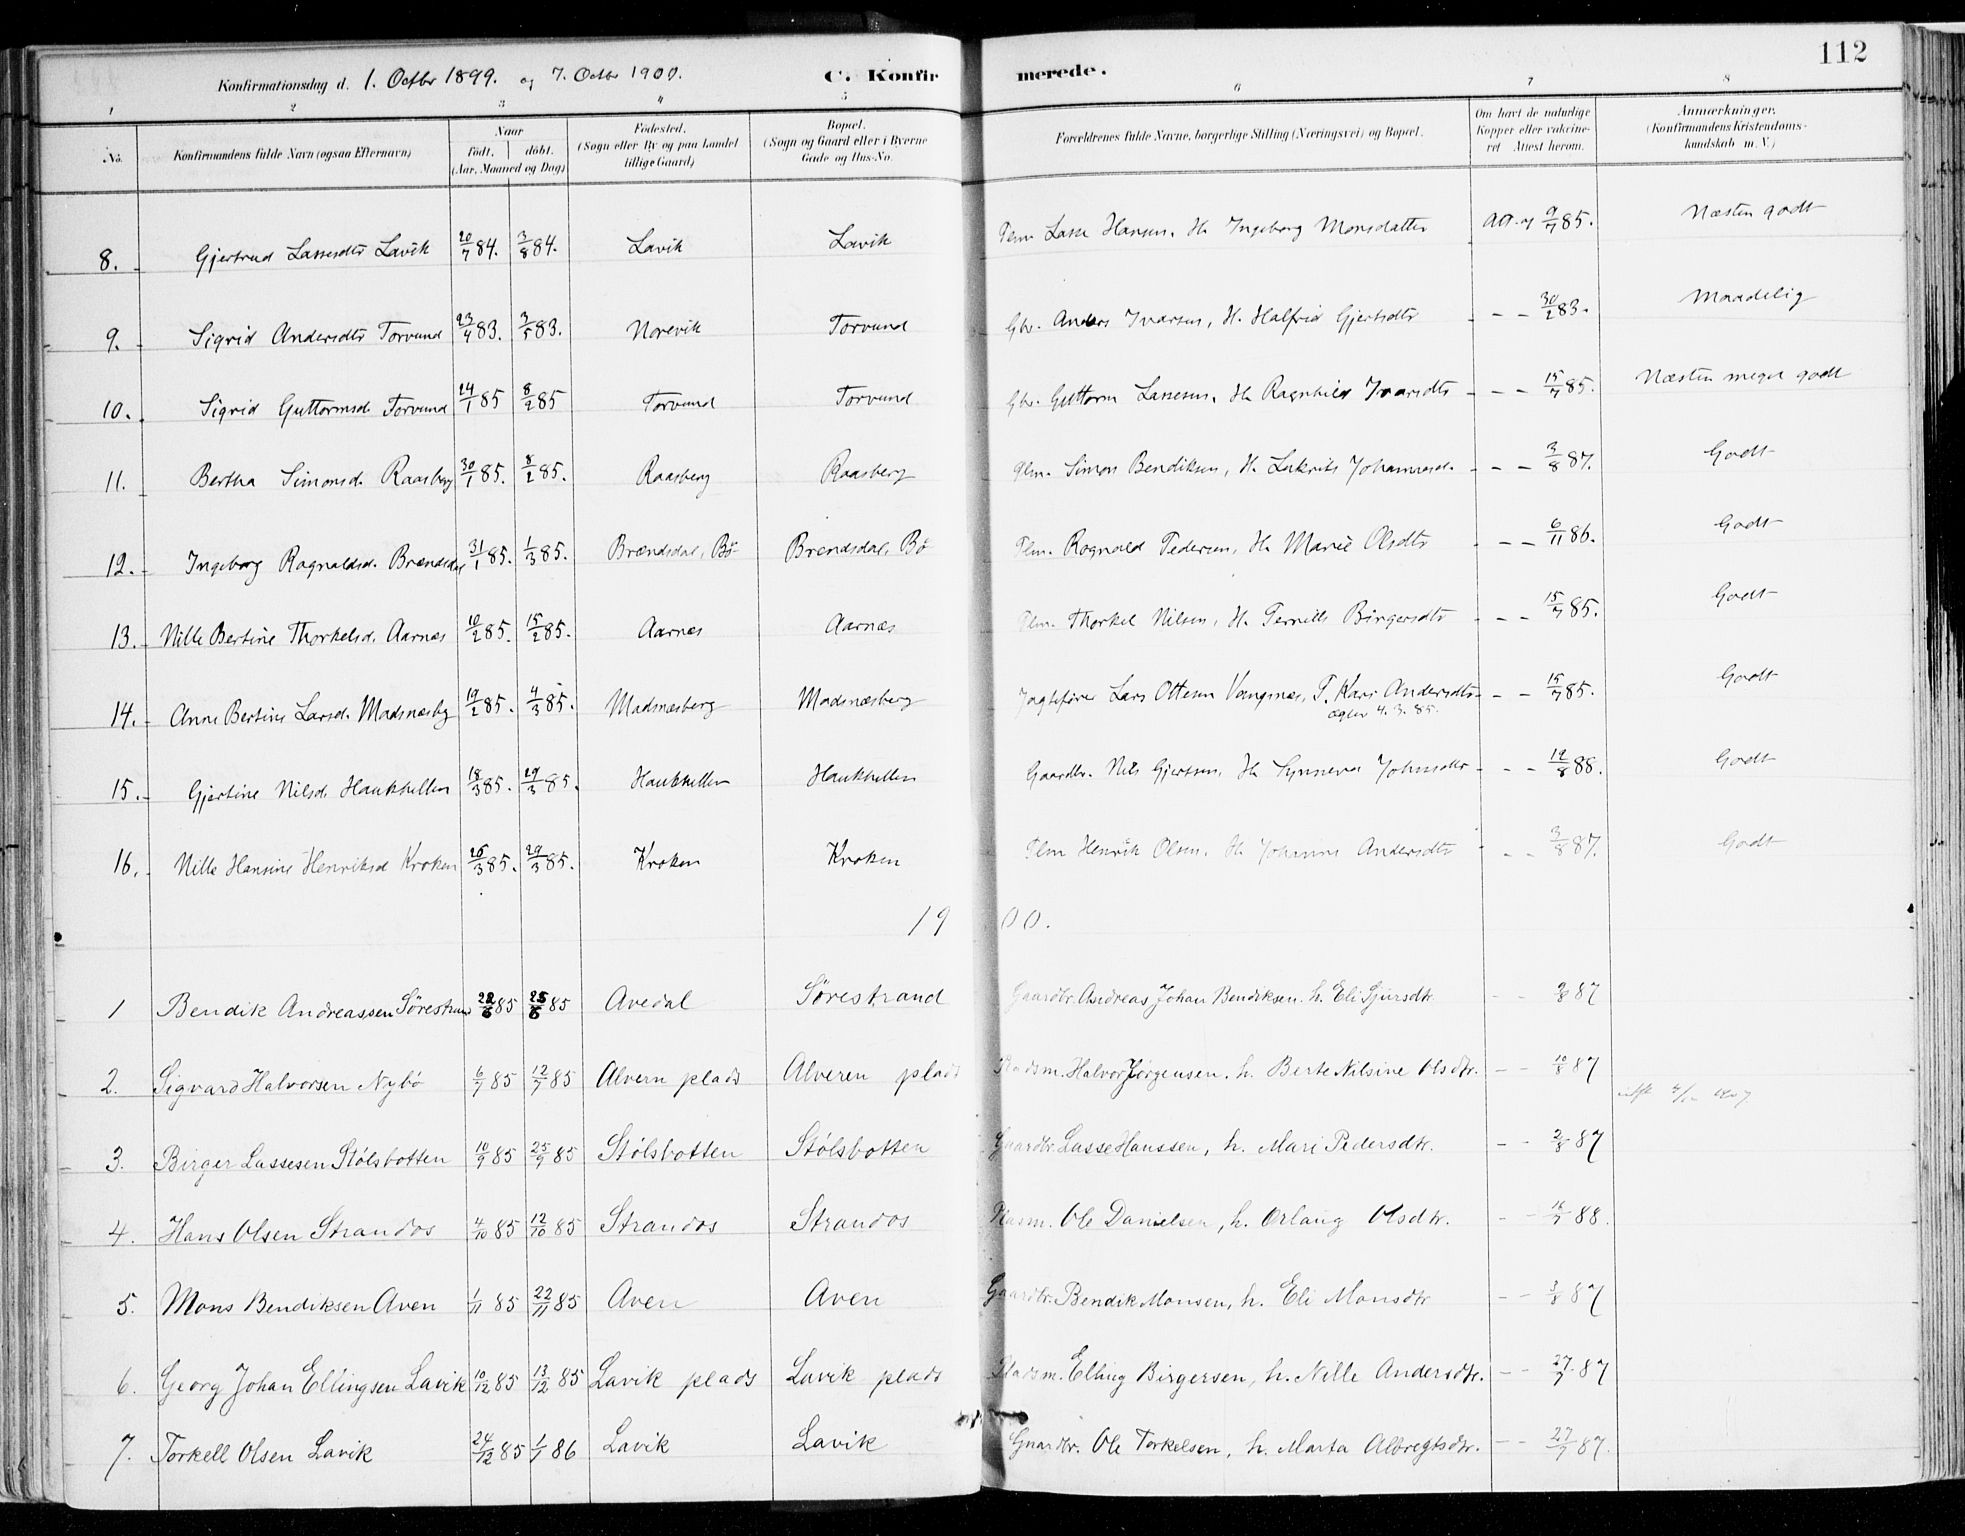 112
Konfirmationsdag d. 1. Octbr 1899. og 7. Octbr 1900. C. Konfirmerede.
1 2 3 4 5 6 7 8
No. Konfirmandens fulde Navn (ogsaa Efternavn) Naar födt. döbt. (Aar, Maaned og Dag) Födested. (Sogn eller By og paa Landet tillige Gaard) Bopæl. (Sogn og Gaard eller i Byerne Gade og Hus-No. Forældrenes fulde Navne, borgerlige Stilling (Næringsvei) og Bopæl. Om havt de naturlige Kopper eller vakcineret Attest herom. Anmærkninger. (Konfirmandens Kristendomskundskab m. V.)
8. Gjertrud Lassesdtr Lavik 20/7 84. 3/8 84. Lavik Lavik Plm. Lasse Hansen. H. Ingeborg Monsdatter Att. af 9/7 85. Næsten godt
9. Sigrid Andersdtr Torvund 23/4 83. 3/5 83. Norevik Torvund Gbr. Anders Ivarsen, H. Halfrid Gjertsdtr - - 30/2 83. Maadelig
10. Sigrid Guttormsd. Torvund 24/1 85 8/2 85 Torvund Torvund Gbr. Guttorm Lassesen, H. Ragnhild Ivarsdtr - - 15/7 85. Næsten meget godt
11. Bertha Simonsd. Raasberg 30/1 85. 8/2 85. Raasberg Raasberg Plm. Simon Bendiksen, H. Johannesd. - - 3/8 87. Godt
12. Ingeborg Ragnaldsd. Brændsdal 31/1 85. 1/3 85. Brændsdal, Bö Brendsdal, Bö Plm. Ragnald Pedersen, H. Marie Olsdtr - - 6/11 86. Godt
13. Nille Bertine Thorkelsd. Aarnæs 10/2 85. 15/2 85. Aarnæs Aarnæs Plm. Thorkel Nilsen, H. Pernille Birgersdtr - - 15/7 85. Godt
14. Anne Bertine Larsd. Madsnæsbg 19/2 85. 4/3 85. Madsnæsberg Madsnæsberg Jagtefører Lars Ottesen Vangsnes, P. Kari Andersdtr - - 15/7 85. Godt
ægter 4. 3. 85.
15. Gjertine Nilsd. Haukhellen 18/3 85. 29/3 85. Haukhellen Haukhellen Gaardbr. Nils Gjertsen, H. Synneva Johnsdtr - - 12/8 88. Godt
16. Nille Hansine Henriksd Kroken 26/3 85. 29/3 85. Kroken Kroken Plm Henrik Olsen. H. Johanne Andersdtr - - 3/8 87. Godt
1900.
1 Bendik Andreassen Sørestrand 22/6 85 25/6 85 Avedal Sørestrand Gaardbr. Andreas Johan Bendiksen. h. Eli Sjursdtr. - - 2/8 87
2. Sigvard Halvorsen Nybø 6/7 85 12/7 85 Alvern plads Alveren plads Pladsm. Halvor Jørgensen. h. Berte Nilsine Olsdtr. - - 10/8 87
3. Birger Lassesen Stølsbotten 10/9 85 25/9 85 Stølsbotten Stølsbotten Gaardbr. Lasse Hanssen, h. Mari Pedersdtr. - - 2/8 87
4. Hans Olsen Strandos 4/10 85 12/10 85 Strandos Strandos Plasm. Ole Danielsen, h. Orlaug Olsdtr. - - 16/7 88.
5. Mons Bendiksen Aven 1/11 85 22/11 85 Aven Aven Gaardbr. Bendik Monsen, h. Eli Monsdtr - - 3/8 87
6. Georg Johan Ellingsen Lavik 10/12 85 13/12 85 Lavik plads Lavik plads Pladsm. Elling Birgersen, h. Nille Andersdtr. - - 27/7 87
7. Torkell Olsen Lavik 24/12 85 1/1 86 Lavik Lavik Gaardbr. Ole Torkelsen, h. Marta Albregtsdtr. - - 27/7 87.